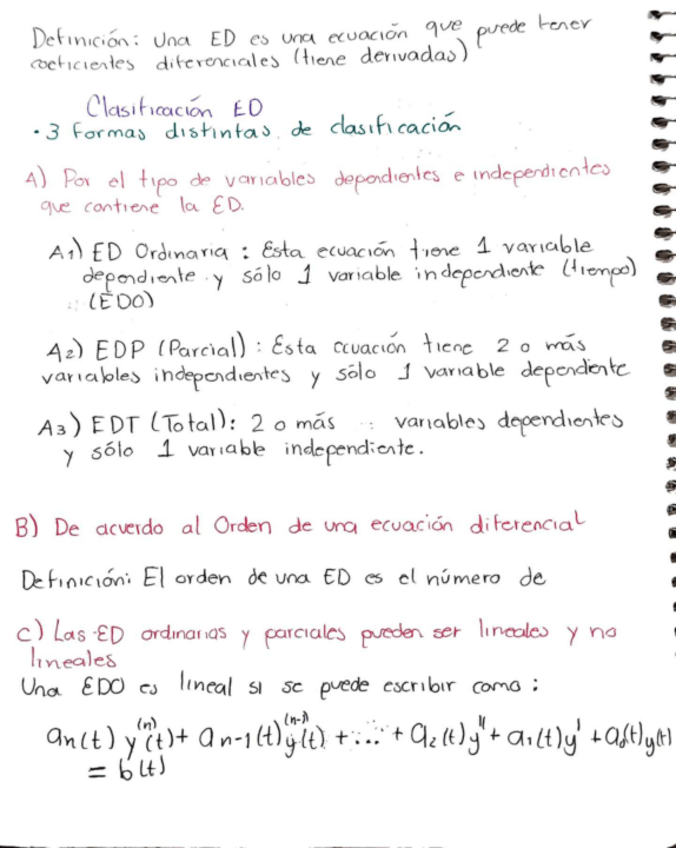 Definición: Una ED es una ecuación que puede tener
coeficientes diferenciales (tiene derivadas)
Clasificación ED
• 3 Formas distintas de clasificación
A) Por el tipo de variables dependientes e independientes
que contiene la ED.
A1) ED Ordinaria : Esta ecuación tiene 1 variable
dependiente y sólo 1 variable independiente (tiempo)
(EDO)
A2) EDP (Parcial) : Esta ecuación tiene 2 o más
variables independientes y sólo 1 variable dependiente
A3) EDT (Total): 2 o más variables dependientes
y sólo 1 variable independiente.
B) De acuerdo al Orden de una ecuación diferencial
Definición: El orden de una ED es el número de
c) Las ED ordinarias y parciales pueden ser lineales y no
lineales
Una EDO es lineal si se puede escribir como :
an(t) y^(n)(t) + an-1(t) y^(n-1)(t) + ... + a2(t)y'' + a1(t)y' + a0(t)y(t)
= b(t)